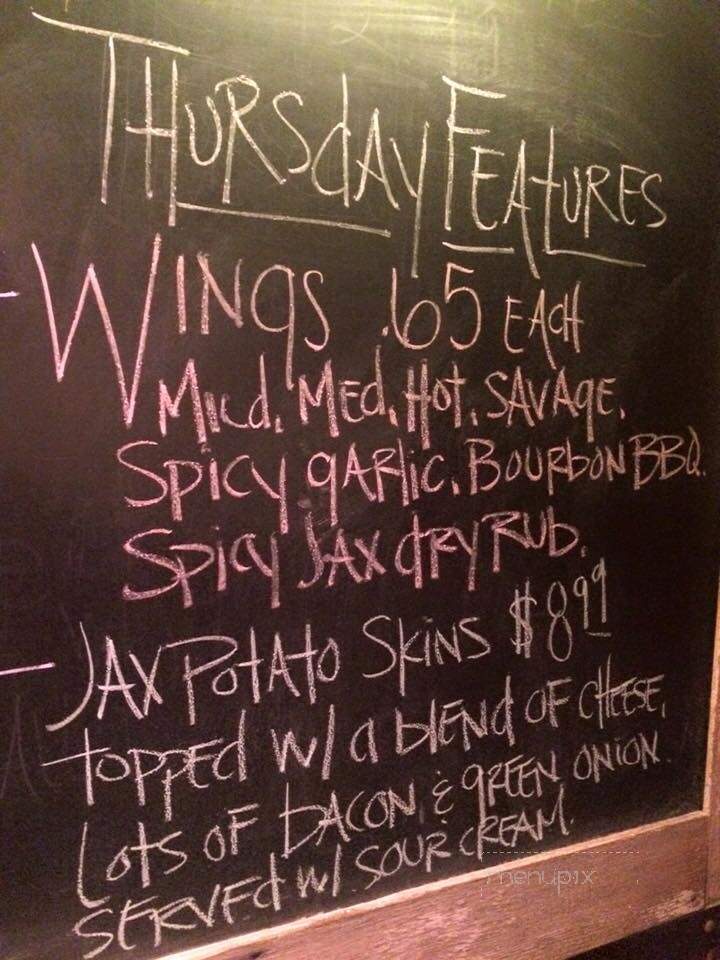 THURSdAY FEAtURES
- WINgS .65 EACH
Mild, Med, Hot, SAVAgE,
Spicy gARlic, BOURbON BBQ,
Spicy JAX dRY RUb.
- JAX POtAtO SkiNS $8.99
tOPPEd w/ a blENd OF CHEESE,
LOtS OF bACON & gREEN ONiON.
SERVEd w/ SOUR CREAM.
menupix